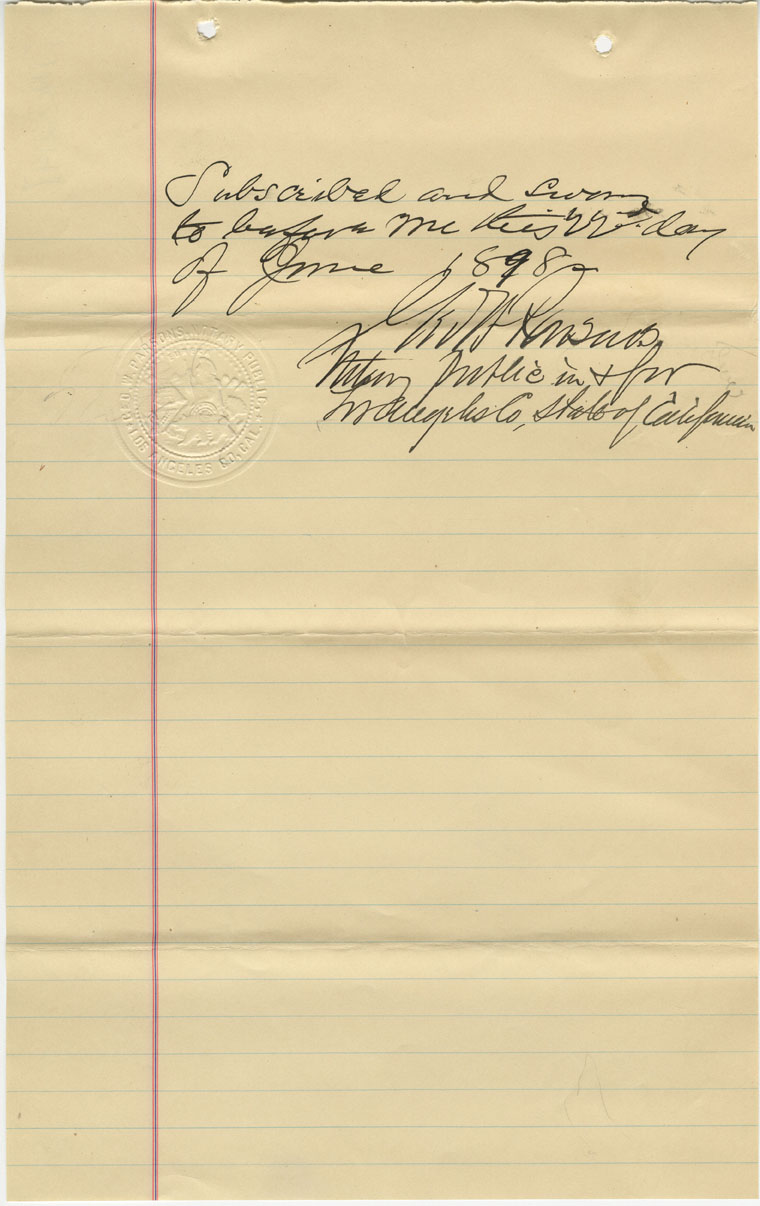 Subscribed and sworn
to before me this 22d day
of June 1898
Geo W Parsons
Notary Public in & for
Los Angeles Co, State of California
GEO. W. PARSONS, NOTARY PUBLIC,
LOS ANGELES CO. CAL.